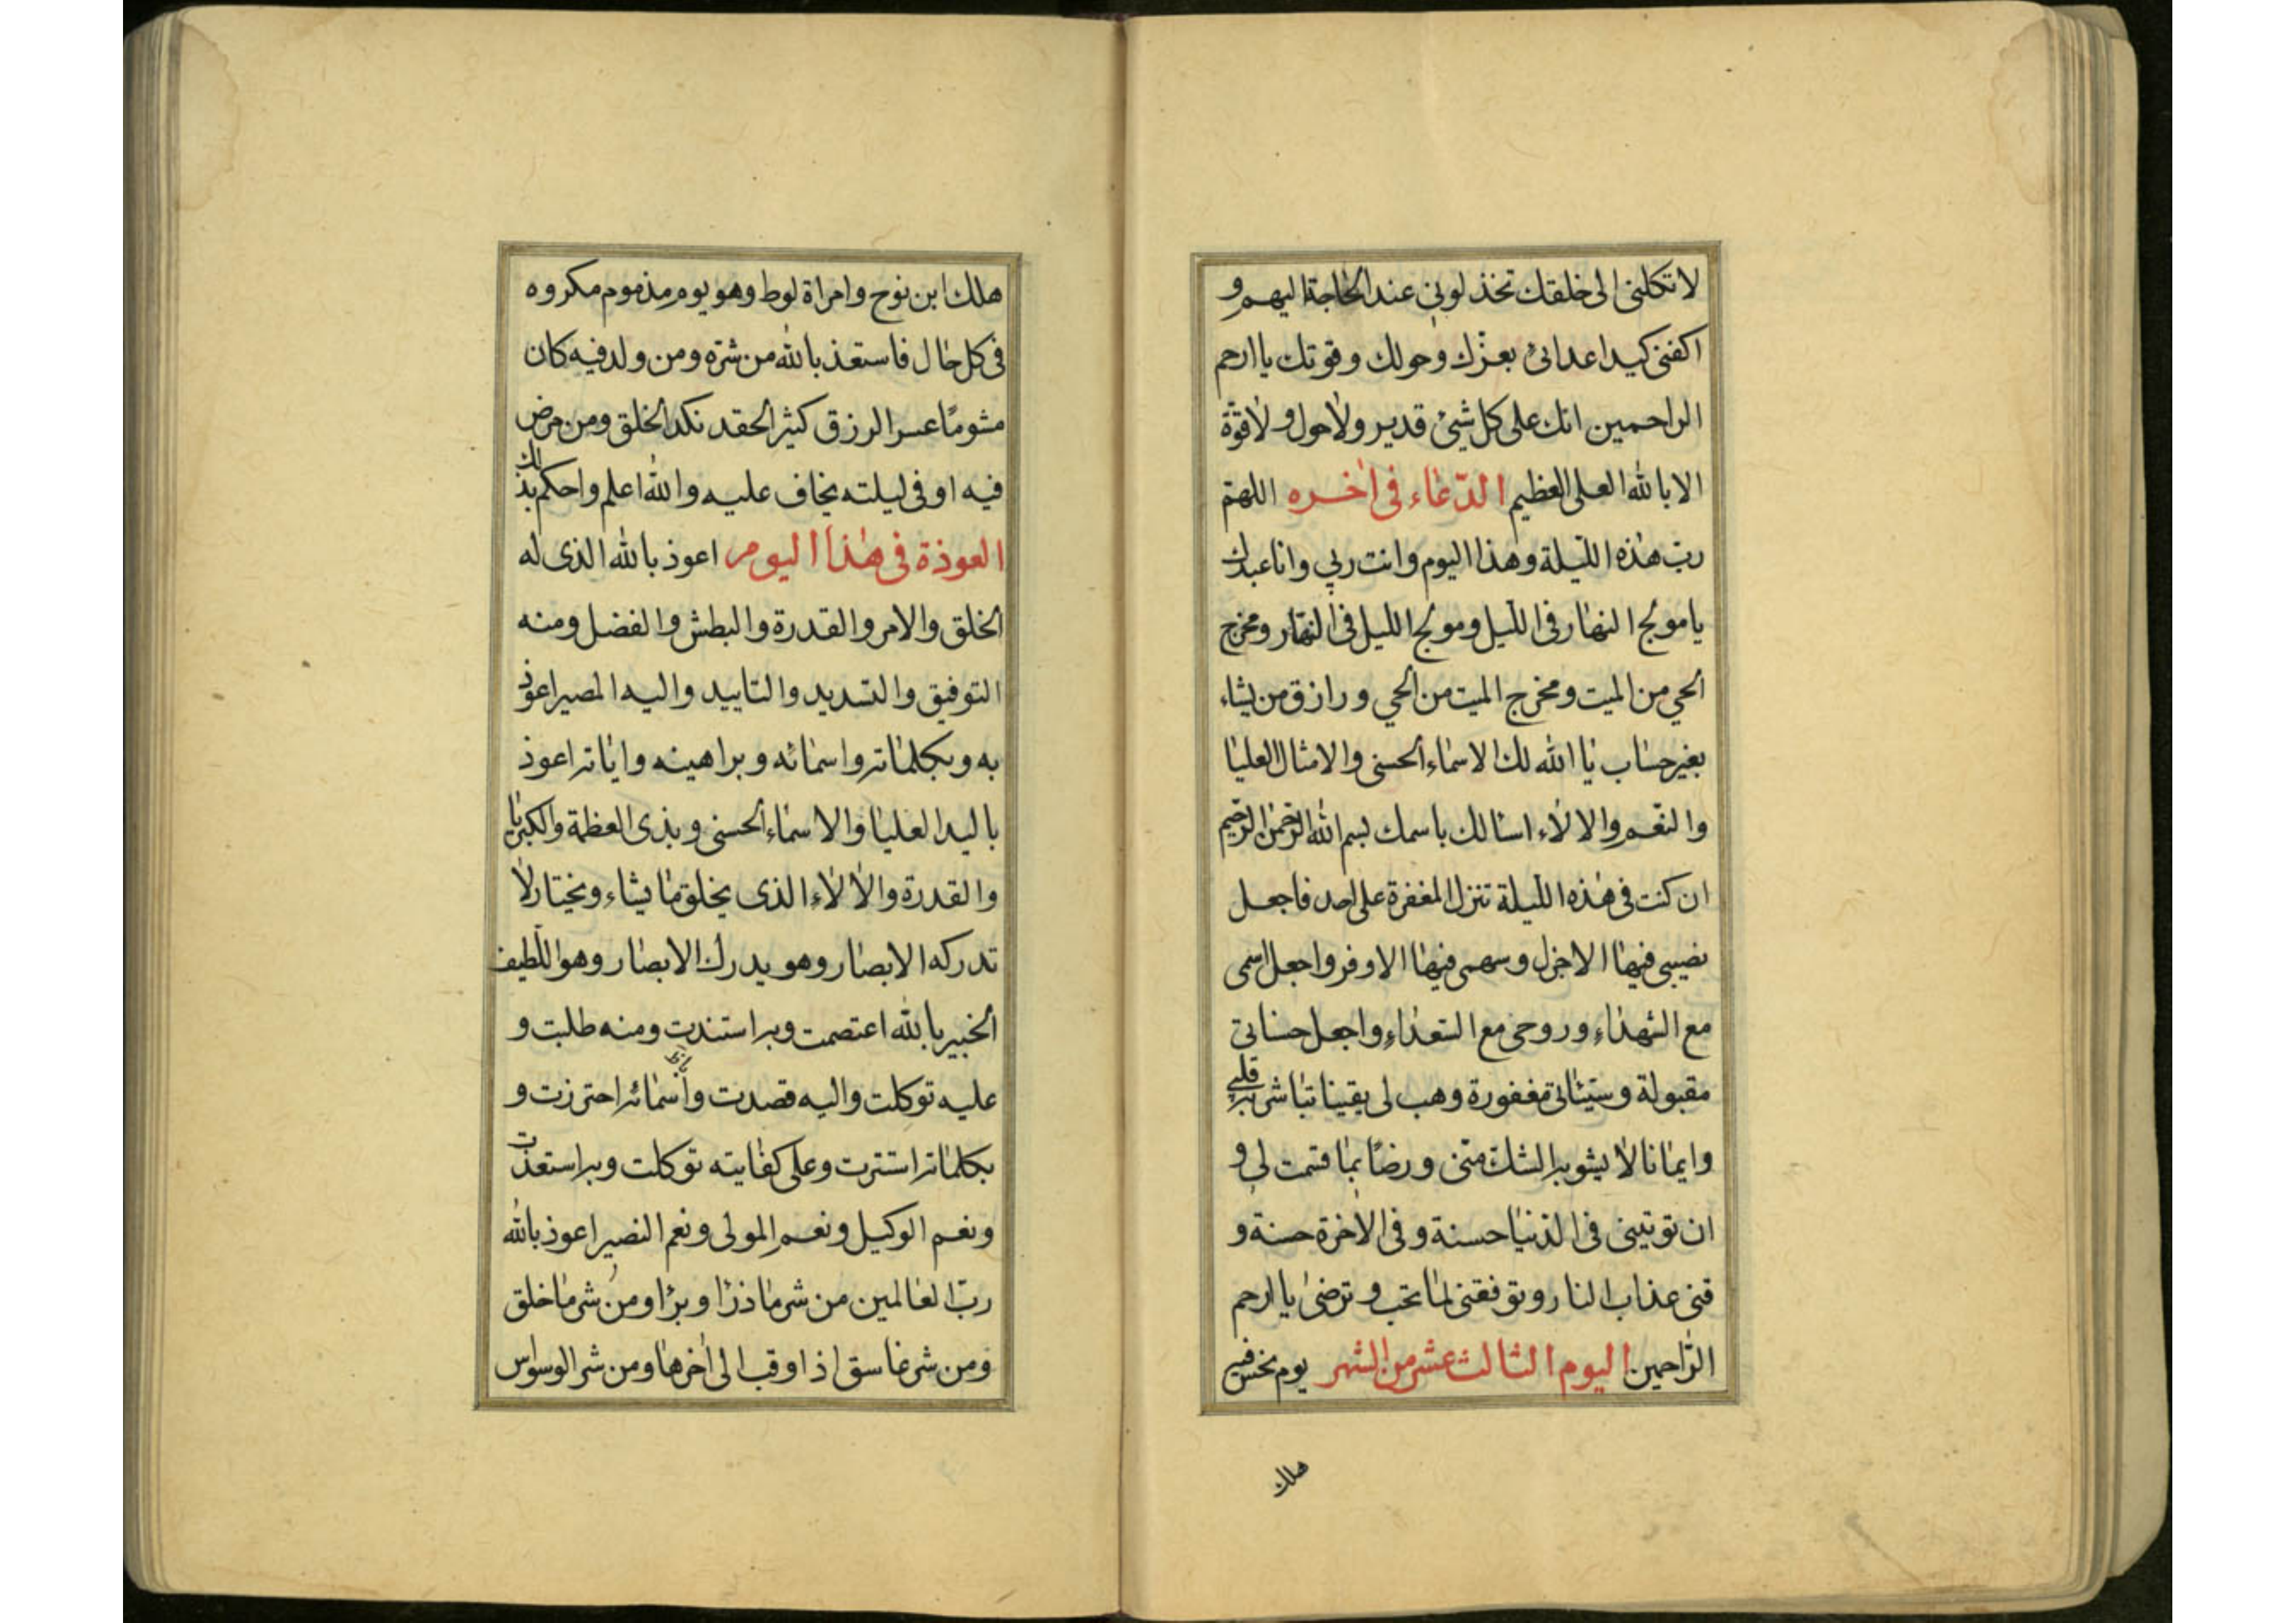 لا تكلني الى خلقك تخذلوني عند الحاجة اليهم و
اكفني كيد اعدائي بعزك وحولك وقوتك يا ارحم
الراحمين انك على كل شيئ قدير ولا حول ولا قوة
الا بالله العلي العظيم الدعاء في اخره اللهم
رب هذه الليلة وهذا اليوم وانت ربي وانا عبدك
يا مولج النهار في الليل ومولج الليل في النهار ومخرج
الحي من الميت ومخرج الميت من الحي ورازق من يشاء
بغير حساب يا الله لك الاسماء الحسنى والامثال العليا
والنعم والالاء اسالك باسمك بسم الله الرحمن الرحيم
ان كنت في هذه الليلة تنزل المغفرة على احد فاجعل
نصيبي فيها الاجزل وسهمي فيها الاوفر واجعل اسمي
مع الشهداء وروحي مع السعداء واجعل حسناتي
مقبولة وسيئاتي مغفورة وهب لي يقينا تباشر به قلبي
وايمانا لا يشوبه الشك مني ورضًا بما قسمت لي و
ان تؤتيني في الدنيا حسنة وفي الاخرة حسنة و
قني عذاب النار وتوفقني لما تحب وترضى يا ارحم
الراحمين اليوم الثالث عشر من الشهر يوم نحس فيه
هلك
هلك ابن نوح وامراة لوط وهو يوم مذموم مكروه
في كل حال فاستعذ بالله من شره ومن ولد فيه كان
مشومًا عسر الرزق كثير الحقد نكد الخلق ومن مرض
فيه او في ليلته يخاف عليه والله اعلم واحكم بذلك
العوذة في هذا اليوم اعوذ بالله الذي له
الخلق والامر والقدرة والبطش والفضل ومنه
التوفيق والتسديد والتاييد واليه المصير اعوذ
به وبكلماته واسمائه وبراهينه واياته اعوذ
باليد العليا والاسماء الحسنى وبذي العظمة والكبريا
والقدرة والالاء الذي يخلق ما يشاء ويختار لا
تدركه الابصار وهو يدرك الابصار وهو اللطيف
الخبير بالله اعتصمت وبه استندت ومنه طلبت و
عليه توكلت واليه قصدت وأسمائه احترزت و
بكلماته استترت وعلى كفايته توكلت وبه استعذت
ونعم الوكيل ونعم المولى ونعم النصير اعوذ بالله
رب العالمين من شر ما ذرأ وبرأ ومن شر ما خلق
ومن شر غاسق اذا وقب الى اخرها ومن شر الوسواس